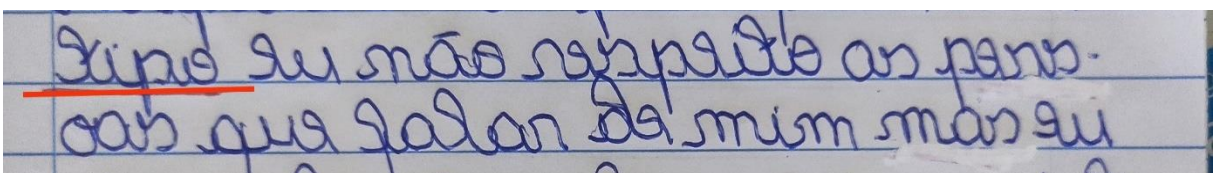 eu não respeito as pess-
oas que falan de mim mas eu